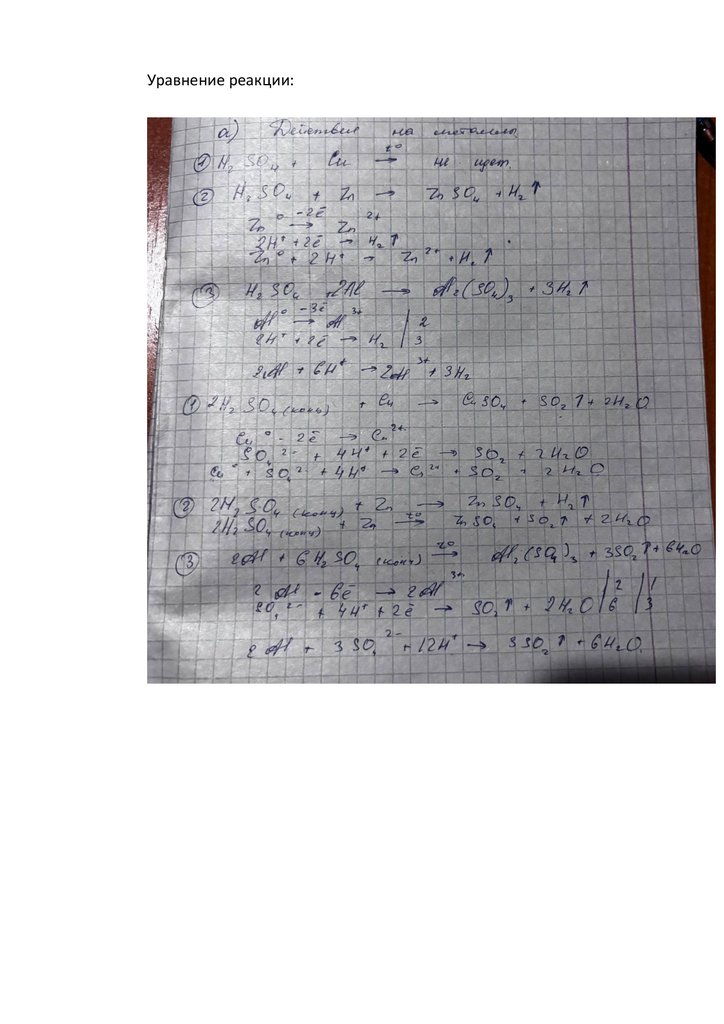 Уравнение реакции:
а) Действия на металлы
① H₂SO₄ + Cu →(t°) не идет.
② H₂SO₄ + Zn → ZnSO₄ + H₂↑
Zn⁰ →(-2ē) Zn²⁺
2H⁺ + 2ē → H₂↑
Zn⁰ + 2H⁺ → Zn²⁺ + H₂↑
③ H₂SO₄ + 2Al → Al₂(SO₄)₃ + 3H₂↑
Al⁰ →(-3ē) Al³⁺ | 2
2H⁺ + 2ē → H₂ | 3
2Al + 6H⁺ → 2Al³⁺ + 3H₂
① 2H₂SO₄ (конц) + Cu → CuSO₄ + SO₂↑ + 2H₂O
Cu⁰ - 2ē → Cu²⁺
SO₄²⁻ + 4H⁺ + 2ē → SO₂ + 2H₂O
Cu⁰ + SO₄²⁻ + 4H⁺ → Cu²⁺ + SO₂ + 2H₂O
② 2H₂SO₄ (конц) + Zn → ZnSO₄ + H₂↑
2H₂SO₄ (конц) + Zn →(t°) ZnSO₄ + SO₂↑ + 2H₂O
③ 2Al + 6H₂SO₄ (конц) →(t°) Al₂(SO₄)₃ + 3SO₂↑ + 6H₂O
2Al - 6ē → 2Al³⁺ | 2 | 1
SO₄²⁻ + 4H⁺ + 2ē → SO₂↑ + 2H₂O | 6 | 3
2Al + 3SO₄²⁻ + 12H⁺ → 3SO₂↑ + 6H₂O.